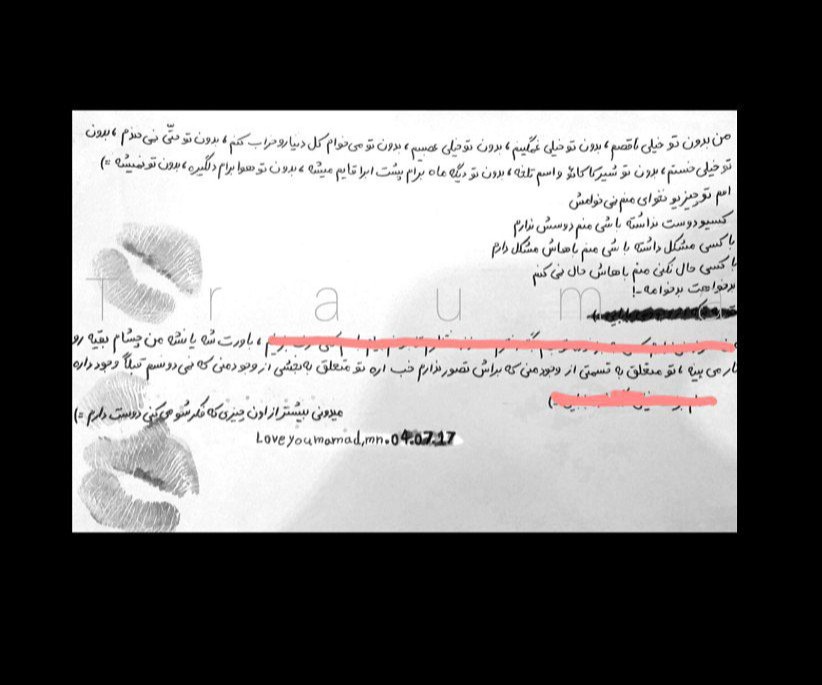 من بدون تو خیلی ناقصم، بدون تو خیلی غمگینم، بدون تو خیلی عصبیم، بدون تو می خوام کل دنیارو خراب کنم، بدون تو حتّی نمی خندم، بدون
تو خیلی خستم، بدون تو شیرکاکائو واسم تلخه، بدون تو دیگه ماه برام پشت ابرا قایم میشه، بدون تو هوا برام دلگیره، بدون تو نمیشه =)
تو چیزیو نخوای منم نمی خوامش
کسیو دوست نداشته باشی منم دوسش ندارم
با کسی مشکل داشته باشی منم باهاش مشکل دارم
با کسی حال نکنی منم باهاش حال نمی کنم
بدخواهت بدخوامه-!
T r a u m a
، باورت شه یا نشه من چشام بقیه رو
تار می بینه، تو متعلق به قسمتی از وجود منی که براش تصور ندارم خب اره تو متعلق به بخشی از وجود منی که نمی دونسم قبلاً وجود داره
میدونی بیشتر از اون چیزی که فکرشو می کنی دوست دارم =)
Love you mamad,mn.04.07.17